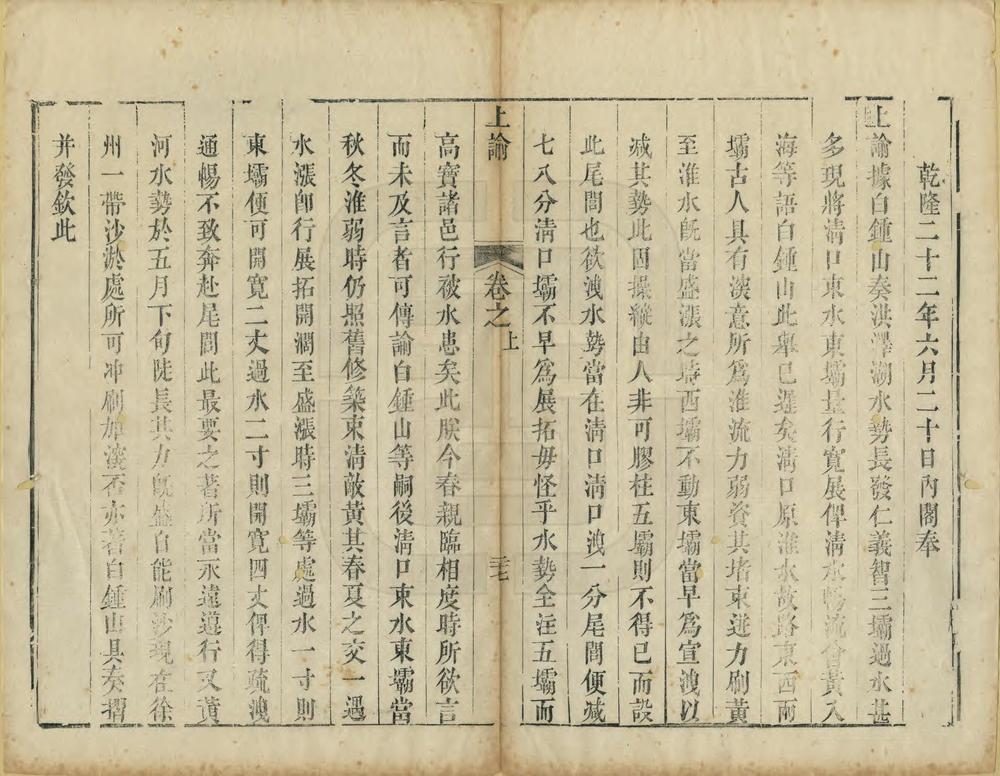 乾隆二十二年六月二十日內閣奉
上諭據白鍾山奏洪澤湖水勢長發仁義智三壩過水甚
多現將清口東水東壩量行寬展俾清水暢流會黃入
海等語白鍾山此舉已遲矣清口原淮水故路東西兩
壩古人具有深意所爲淮流力弱資其堵束迸力刷黃
至淮水旣當盛漲之時西壩不動東壩當早爲宣洩以
減其勢此固操縱由人非可膠柱五壩則不得已而設
此尾閭也欲洩水勢當在清口清口洩一分尾閭便減
七八分清口壩不早爲展拓毋怪乎水勢全注五壩而
上諭
卷之上
三七
高寶諸邑行被水患矣此朕今春親臨相度時所欲言
而未及言者可傳諭白鍾山等嗣後清口東水東壩當
秋冬淮弱時仍照舊修築束清敵黃其春夏之交一遇
水漲卽行展拓開濶至盛漲時三壩等處過水一寸則
東壩便可開寬二丈過水二寸則開寬四丈俾得疏洩
通暢不致奔赴尾閭此最要之著所當永遠遵行又黃
河水勢於五月下旬陡長其力旣盛自能刷沙現在徐
州一帶沙淤處所可冲刷加深否亦著白鍾山具奏摺
并發欽此